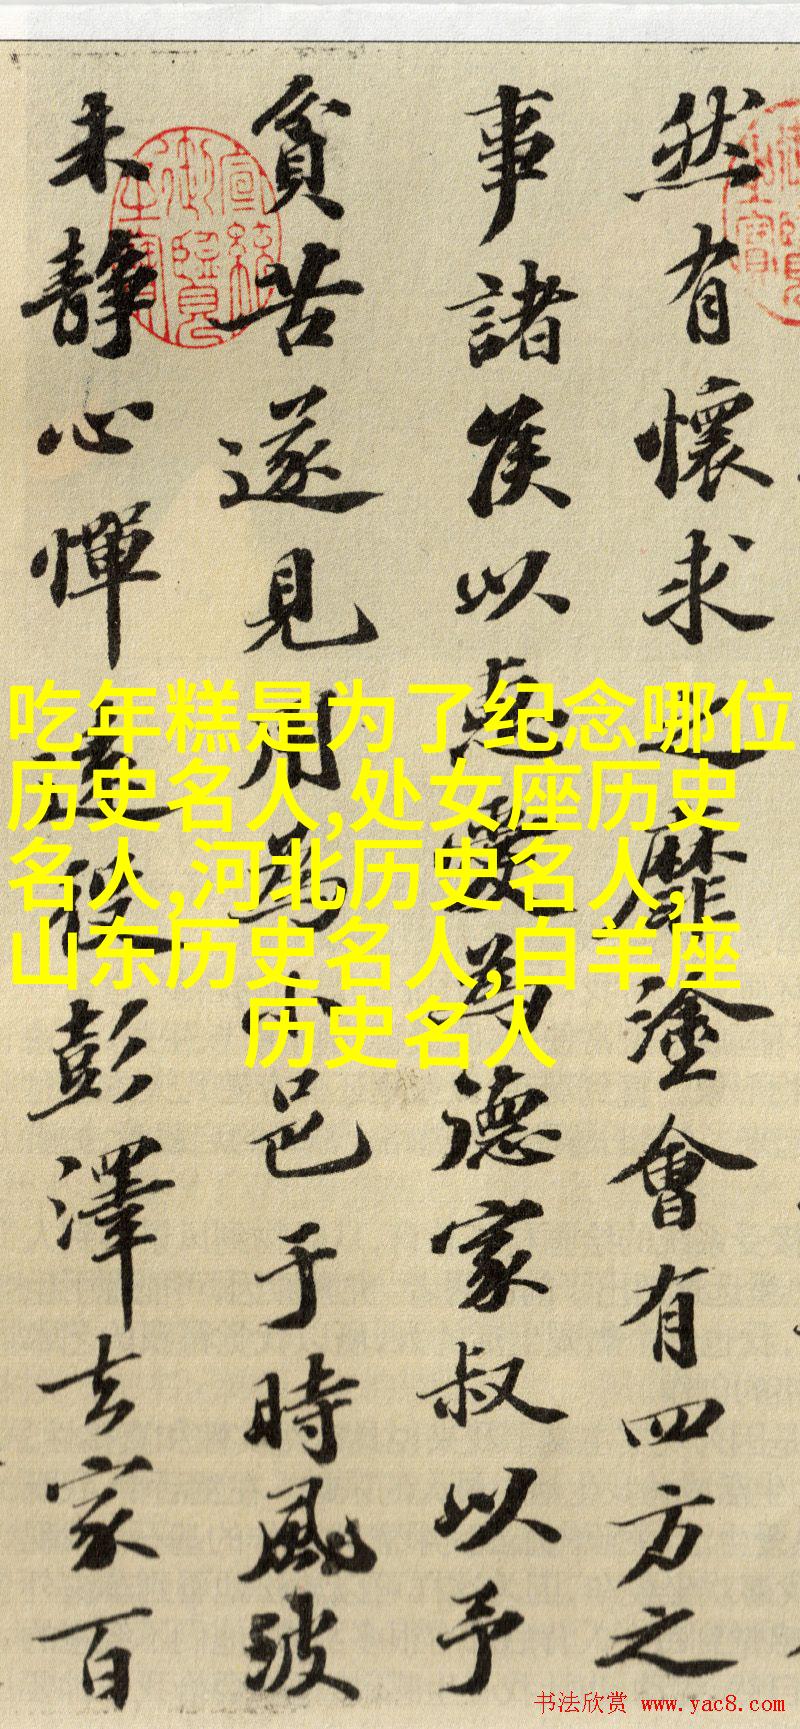 然有懷求之靡塗會有四方之
事諸侯以惠愛為德家叔以予
貧苦遂見用為小邑于時風波
未靜心憚遠役彭澤去家百
宣統御覽之寶
吃年糕是为了纪念哪位
历史名人,处女座历史
名人,河北历史名人,
山东历史名人,白羊座
历史名人
书法欣赏 www.yac8.com